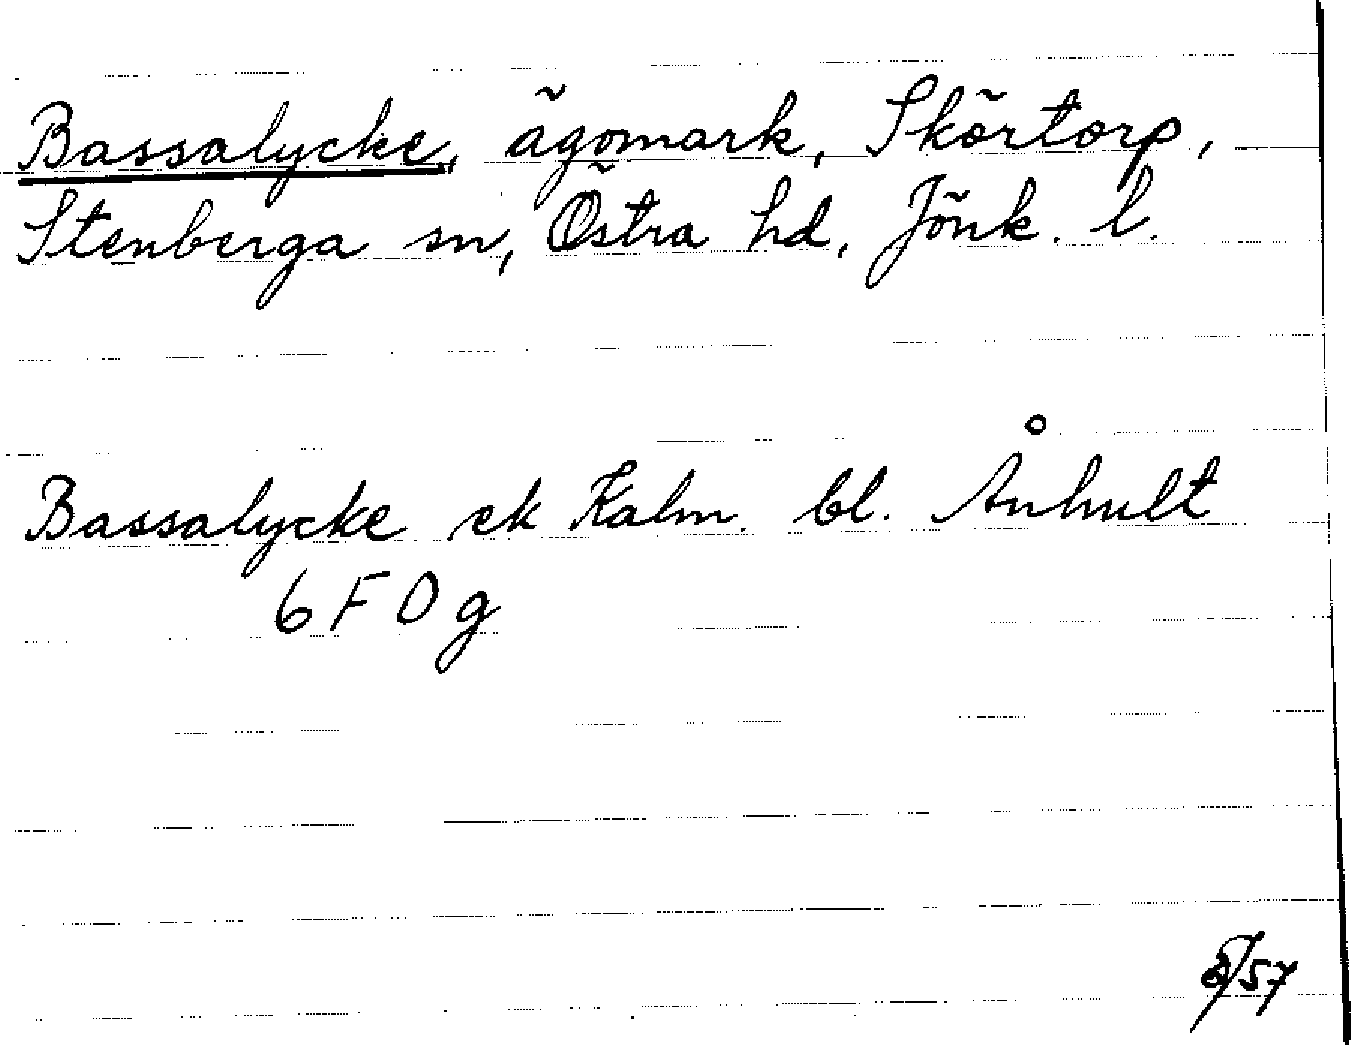 Bassalycke, ägomark, Skörtorp,
Stenberga sn, Östra hd, Jönk. l.
Bassalycke ek Kalm. bl. Ånhult
6 F 0 g
/57